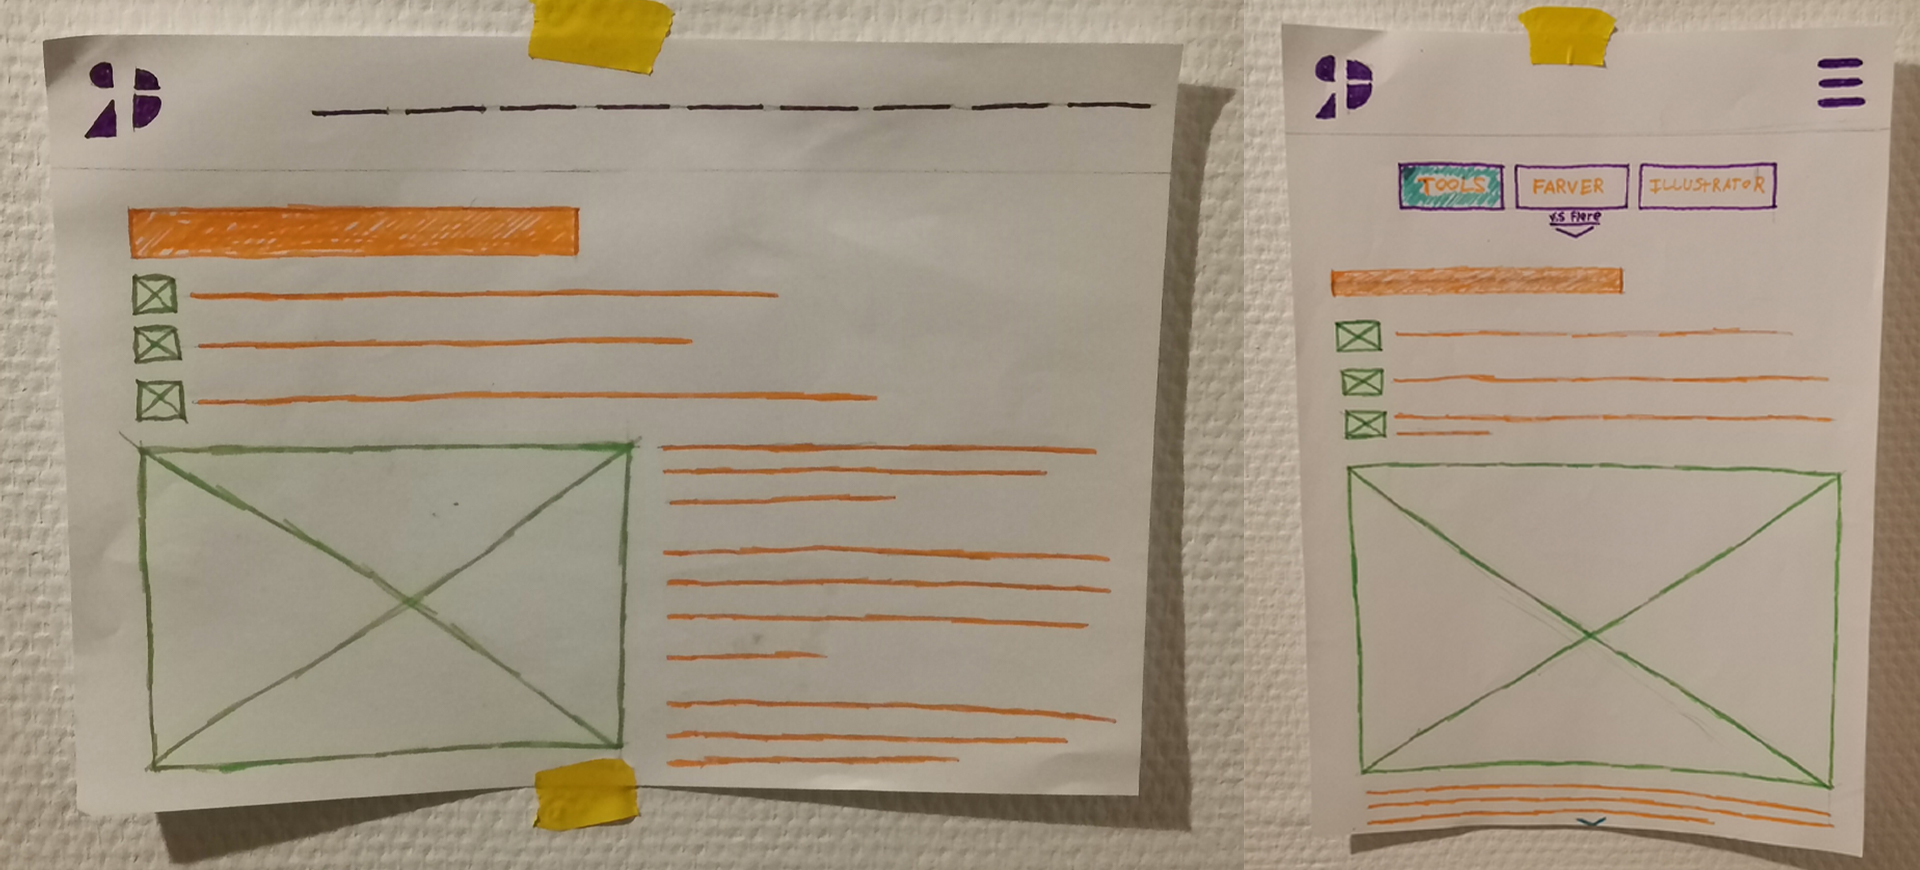 TOOLS
FARVER
ILLUSTRATOR
vis flere